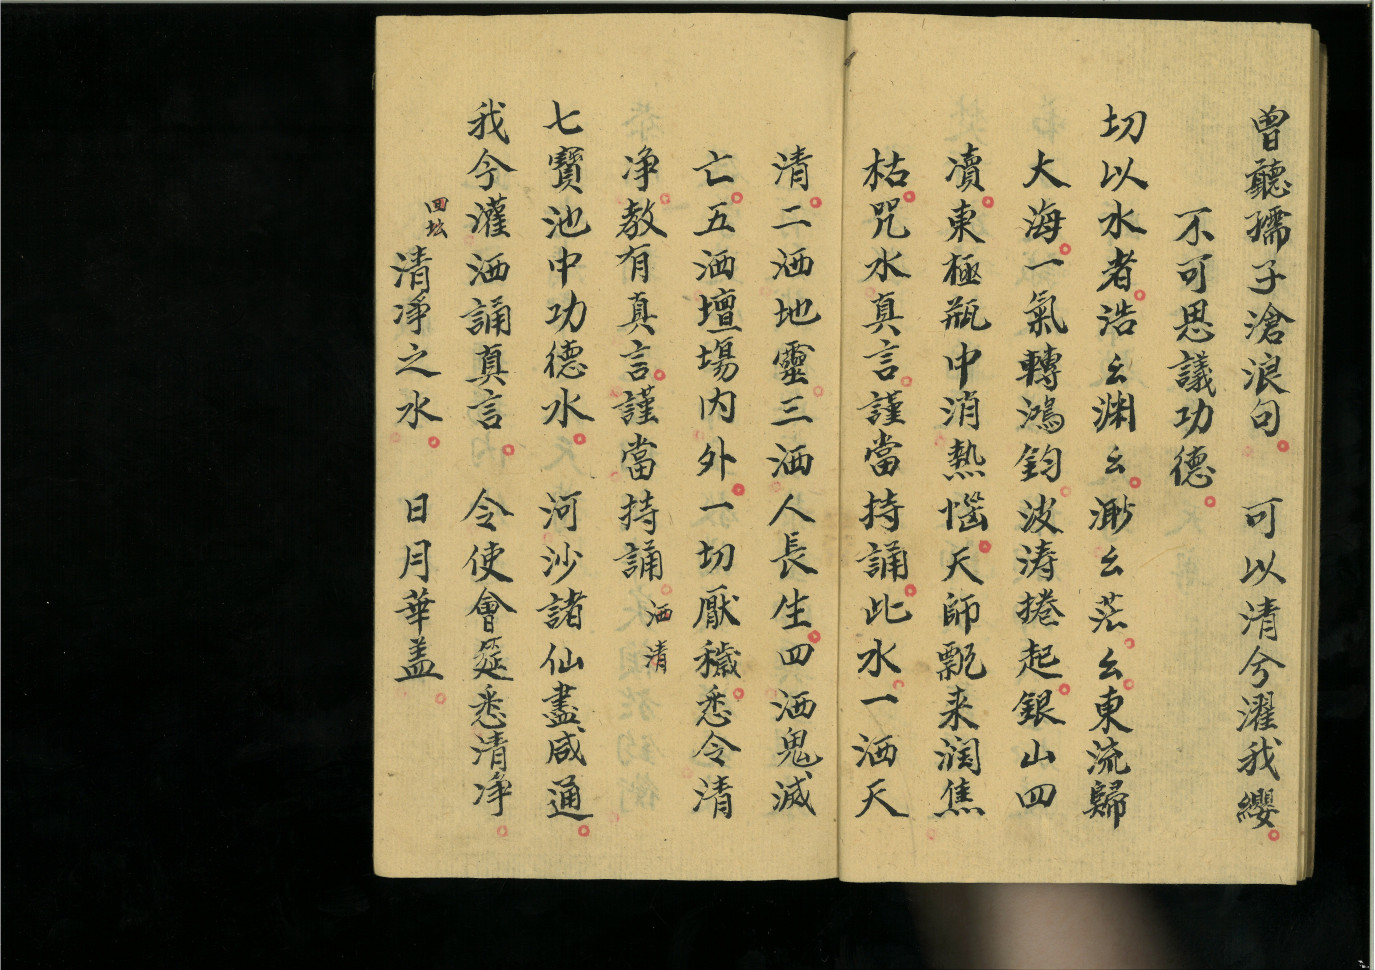 曾聽孺子滄浪句可以清兮濯我纓
不可思議功德
切以水者浩幺渊幺渺幺茫幺東流歸
大海一氣轉鴻鈞波涛捲起銀山四
瀆東極瓶中消熱惱天師瓢来润焦
枯咒水真言謹當持誦此水一洒天
清二洒地靈三洒人長生四洒鬼滅
亡五洒壇場内外一切厭穢悉令清
净教有真言謹當持誦洒清
七寳池中功德水河沙諸仙盡咸通
我今灌洒誦真言令使會筵悉清净
回坛清凈之水日月華盖